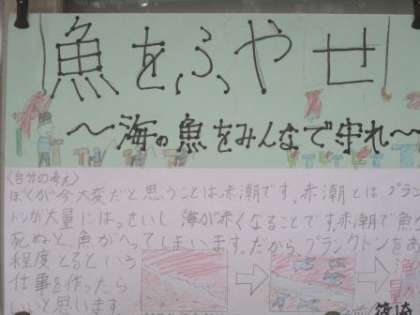 魚をふやせ
〜海の魚をみんなで守れ〜
〈自分の考え〉
ぼくが今大変だと思うことは、赤潮です。赤潮とは、プランク
トンが大量にはっせいし海が赤くなることです。赤潮で魚が
死ぬと、魚がへってしまいます。だから、プランクトンをあ
程度とるという
仕事を作ったら
いいと思います
漁